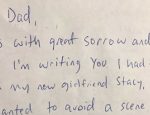 Dad,
with great sorrow and
I'm writing You I had
my new girlfriend Stacy,
wanted to avoid a scene